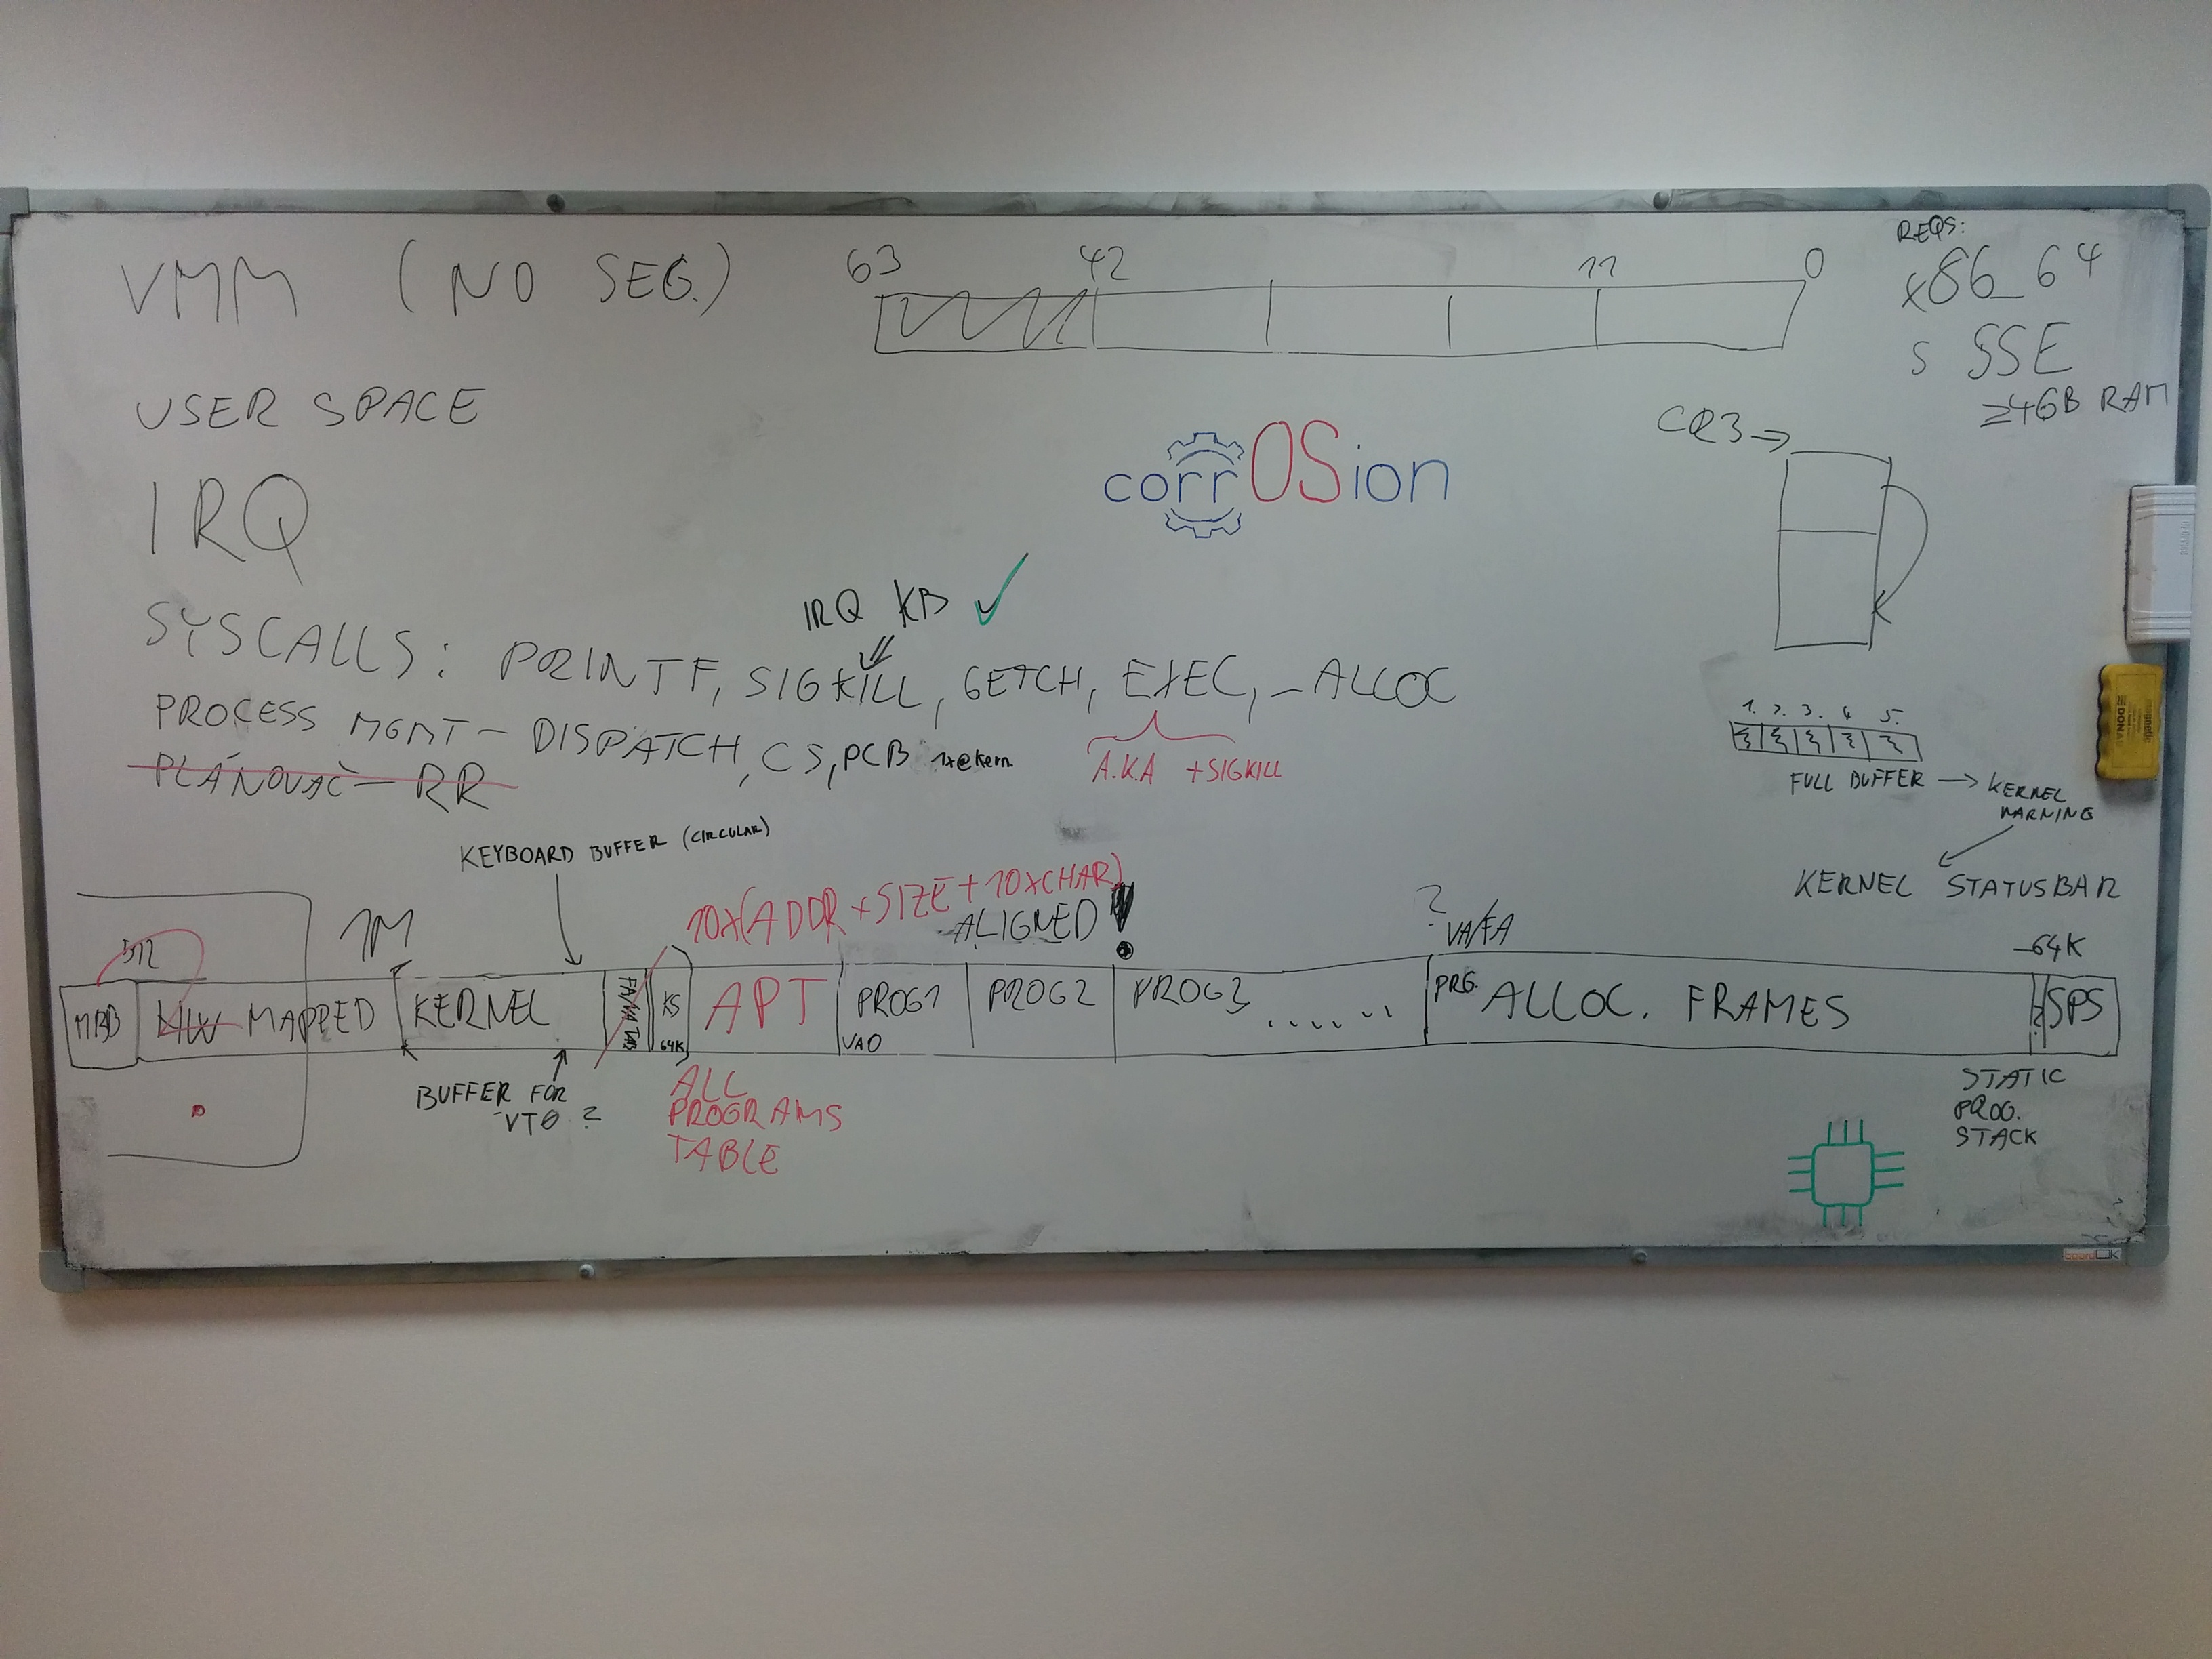 VMM (NO SEG.)
63 42 11 0
REQS:
x86_64
S SSE
≥4GB RAM
USER SPACE
CR3 →
corrOSion
IRQ
IRQ KB ✓
SYSCALLS: PRINTF, SIGKILL, GETCH, EXEC, _ALLOC
A.K.A +SIGKILL
PROCESS MGMT - DISPATCH, CS, PCB 1x@kern.
PLÁNOVAČ - RR
1. 2. 3. 4 5.
FULL BUFFER → KERNEL
WARNING
KERNEL STATUSBAR
KEYBOARD BUFFER (CIRCULAR)
10x(ADDR + SIZE + 10xCHAR)
ALIGNED!
512
1M
?
VA/FA
-64K
MBB
HW MAPPED
KERNEL
FA/VA TAB
KS
64K
APT
PROG1
VA0
PROG2
PROG3 ......
PRG. ALLOC. FRAMES
SPS
BUFFER FOR
VT0 ?
ALL
PROGRAMS
TABLE
STATIC
PROG.
STACK
DONAU
magnetic
boardOK